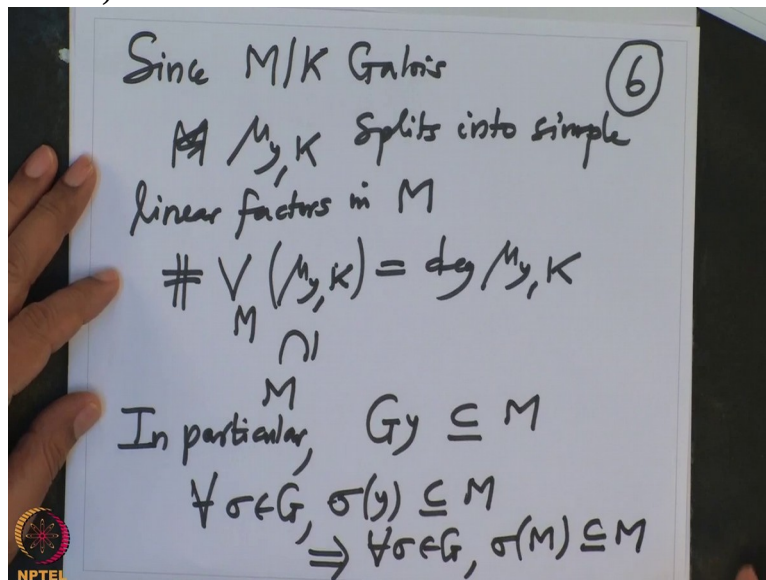 Since M/K Galois
⑥
μ_y,K splits into simple
linear factors in M
# V_M (μ_y,K) = deg μ_y,K
∩|
M
In particular, Gy ⊆ M
∀ σ∈G, σ(y) ⊆ M
⇒ ∀σ∈G, σ(M) ⊆ M
NPTEL